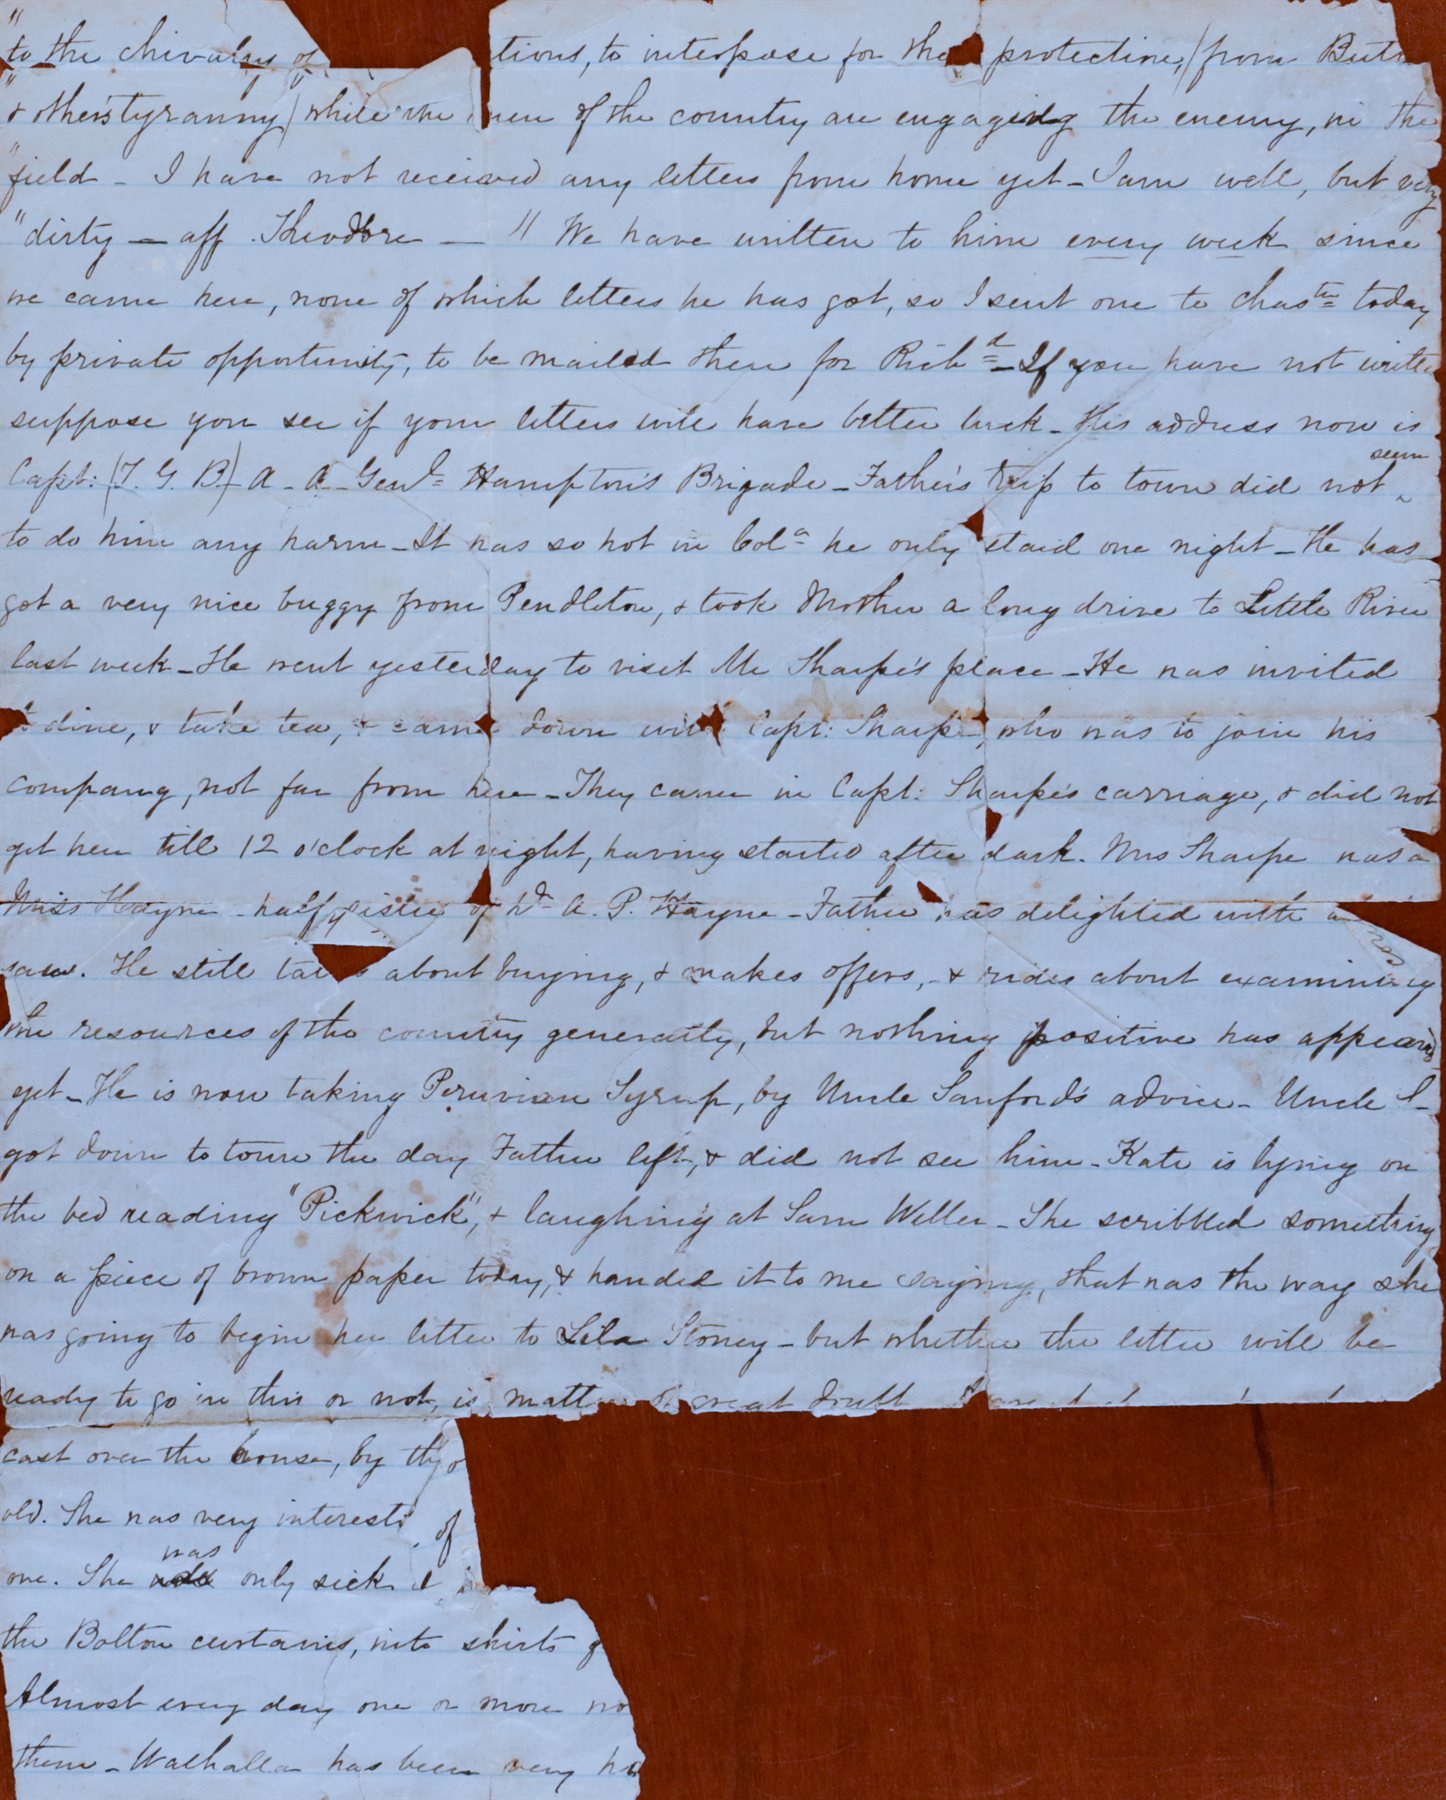 "to the chivalry of tions, to interpose for the protection, (from Butl
"& others tyranny) while the men of the country are engaging the enemy, in the
"field - I have not received any letters from home yet - I am well, but very
"dirty - aff. Theodore - " We have written to him every week since
we came here, none of which letters he has got, so I sent one to Chas.tn today
by private opportunity, to be mailed there for Rich.d - If you have not written
suppose you see if your letters will have better luck - His address now is
Capt: (T. G. B) A - A - Genl Hampton's Brigade - Father's trip to town did not seem
to do him any harm - It was so hot in Cola he only staid one night - He has
got a very nice buggy from Pendleton, & took Mother a long drive to Little River
last week - He went yesterday to visit Mr Sharpe's place - He was invited
dine, & take tea, & came down with Capt: Sharpe, who was to join his
company, not far from here - They came in Capt: Sharpe's carriage, & did not
get here till 12 o'clock at night, having started after dark. Mrs Sharpe was a
Miss Hayne - half sister of A. P. Hayne - Father was delighted with a
saw. He still talks about buying, & makes offers, - & rides about examining
the resources of the country generally, but nothing positive has appeared
yet - He is now taking Peruvian Syrup, by Uncle Sanford's advice - Uncle S -
got down to town the day Father left, & did not see him - Kate is lying on
the bed reading "Pickwick", & laughing at Sam Weller - She scribbled something
on a piece of brown paper today, & handed it to me saying, that was the way she
was going to begin her letter to Lila Stoney - but whether the letter will be
ready to go in this or not, is matter of great doubt
cast over the house, by the
old. She was very interesti of
one. She was only sick
the Bolton curtains, into skirts
Almost every day one or more no
them - Walhalla has been very